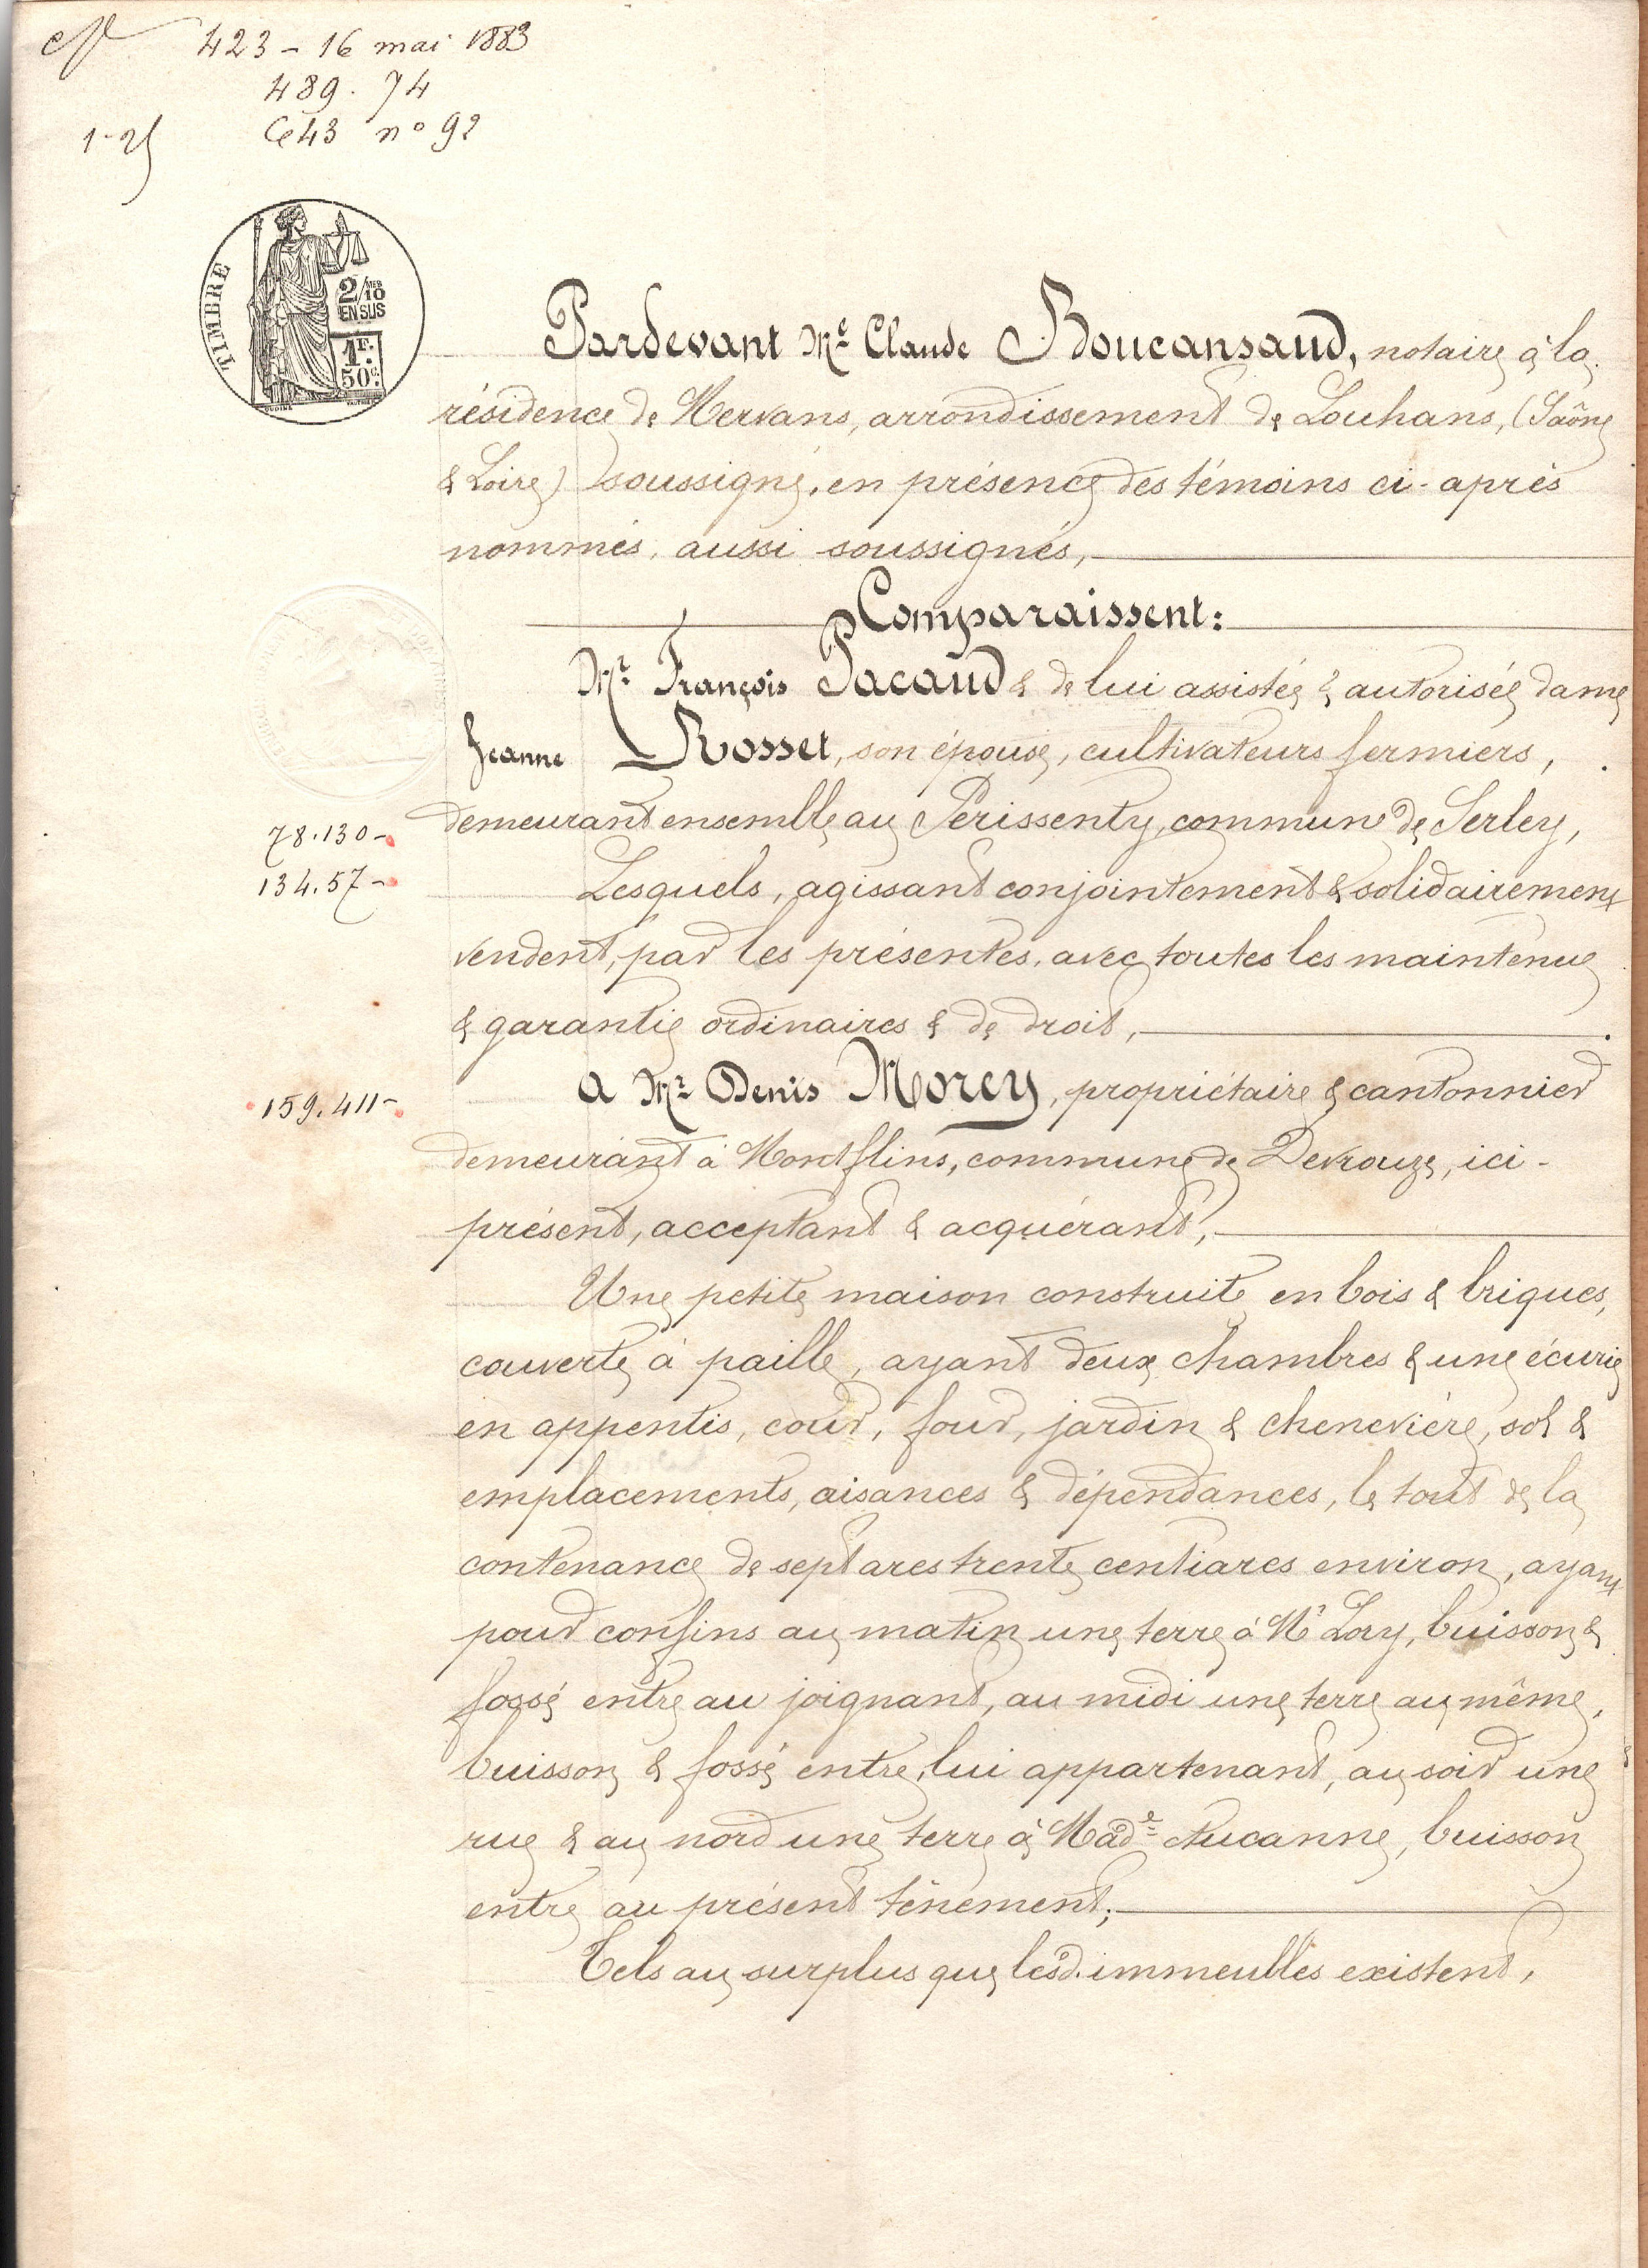 423 - 16 mai 1883
489. 74
Ce 43 n° 92
TIMBRE
2/10 MES
EN SUS
1F.
50c.
Pardevant Me Claude Boucansaud, notaire à la
résidence de Mervans, arrondissement de Louhans, (Saône
& Loire) soussigné, en présence des témoins ci-après
nommés, aussi soussignés,
Comparaissent:
Mr François Pacaud & de lui assistée & autorisée dame
Jeanne Rosset, son épouse, cultivateurs fermiers,
demeurant ensemble au Périssenty, commune de Serley,
78.130-
134.57-
Lesquels, agissant conjointement & solidairement
vendent, par les présentes, avec toutes les maintenue
& garantie ordinaires & de droit,
a Mr Denis Morey, propriétaire & cantonnier
159.411-
demeurant à Montflins, commune de Devrouze, ici-
présent, acceptant & acquérant,
Une petite maison construite en bois & briques,
couverte à paille, ayant deux chambres & une écurie
en appentis, cour, four, jardin & chenevière, sol &
emplacements, aisances & dépendances, le tout de la
contenance de sept ares trente centiares environ, ayant
pour confins au matin une terre à Mr Lory, buisson &
fossé entre au joignant, au midi une terre au même,
buisson & fossé entre, lui appartenant, au soir une
rue & au nord une terre à Made Aucanne, buisson
entre au présent tènement;
Tels au surplus que lesd. immeubles existent,